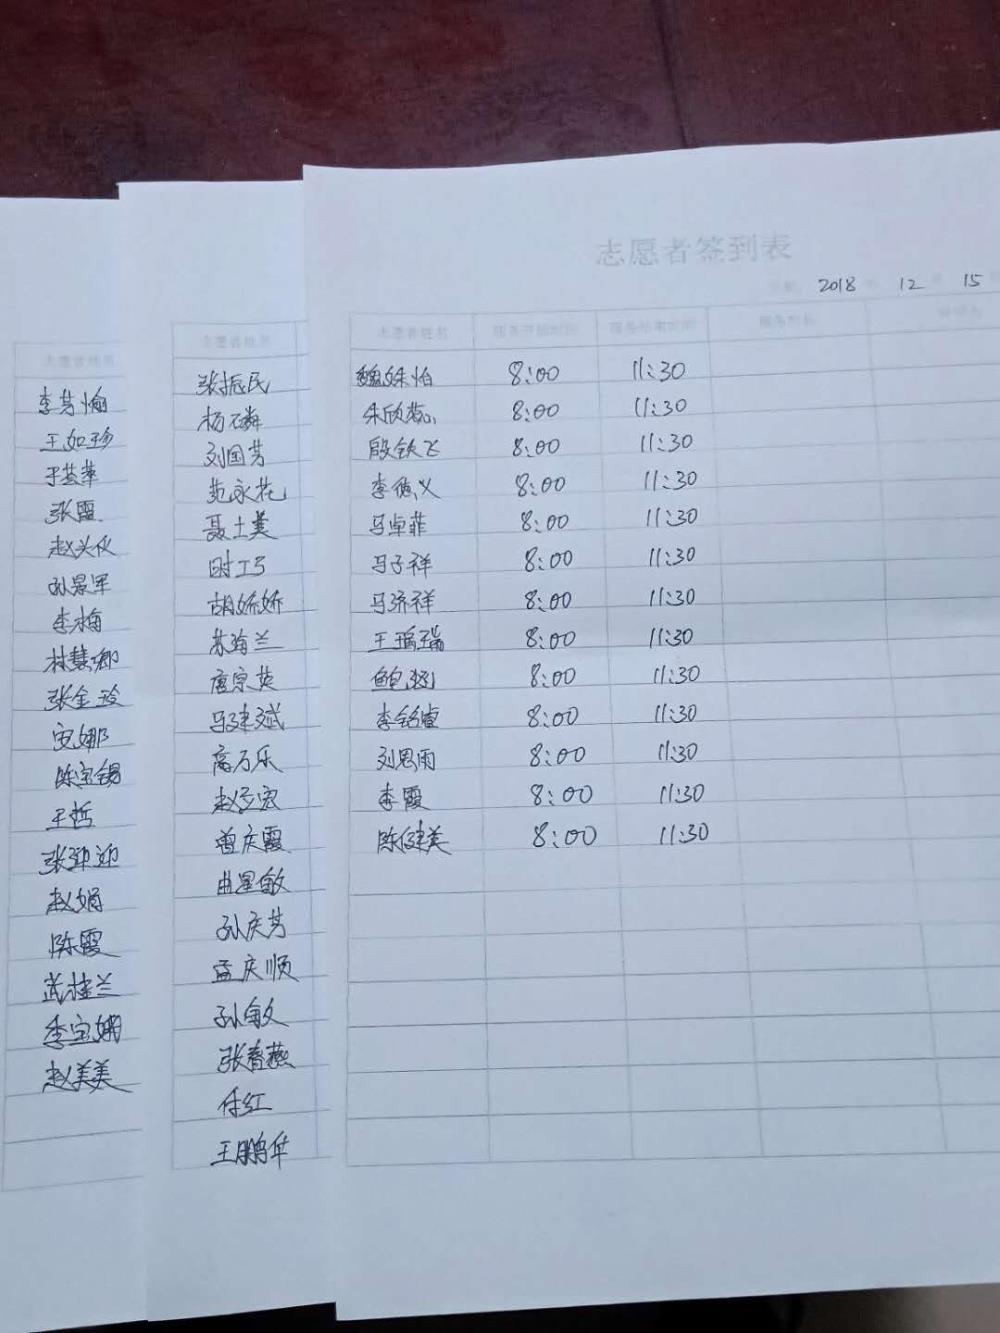 志愿者签到表
2018 12 15
志愿者姓名 服务开始时间 服务结束时间 服务时长
8:00 11:30
朱欣蕊 8:00 11:30
殷钦飞 8:00 11:30
李德义 8:00 11:30
马卓菲 8:00 11:30
马子祥 8:00 11:30
马济祥 8:00 11:30
王瑀瑞 8:00 11:30
8:00 11:30
李铭睿 8:00 11:30
刘思雨 8:00 11:30
李霞 8:00 11:30
陈健美 8:00 11:30
志愿者姓名
张振民
杨磷
刘国芳
范永花
聂土美
胡娇娇
苏海兰
唐宗英
马建斌
高万乐
赵孟宏
曾庆霞
曲星敏
孙庆芳
孟庆顺
孙敏
张春燕
任红
王鹏华
志愿者姓名
李芳愉
王如珍
于芸苹
张霞
孙景军
李梅
林慧卿
张金玲
安娜
陈宝锡
王哲
张迎迎
赵娟
陈霞
武桂兰
季宝娥
赵美美